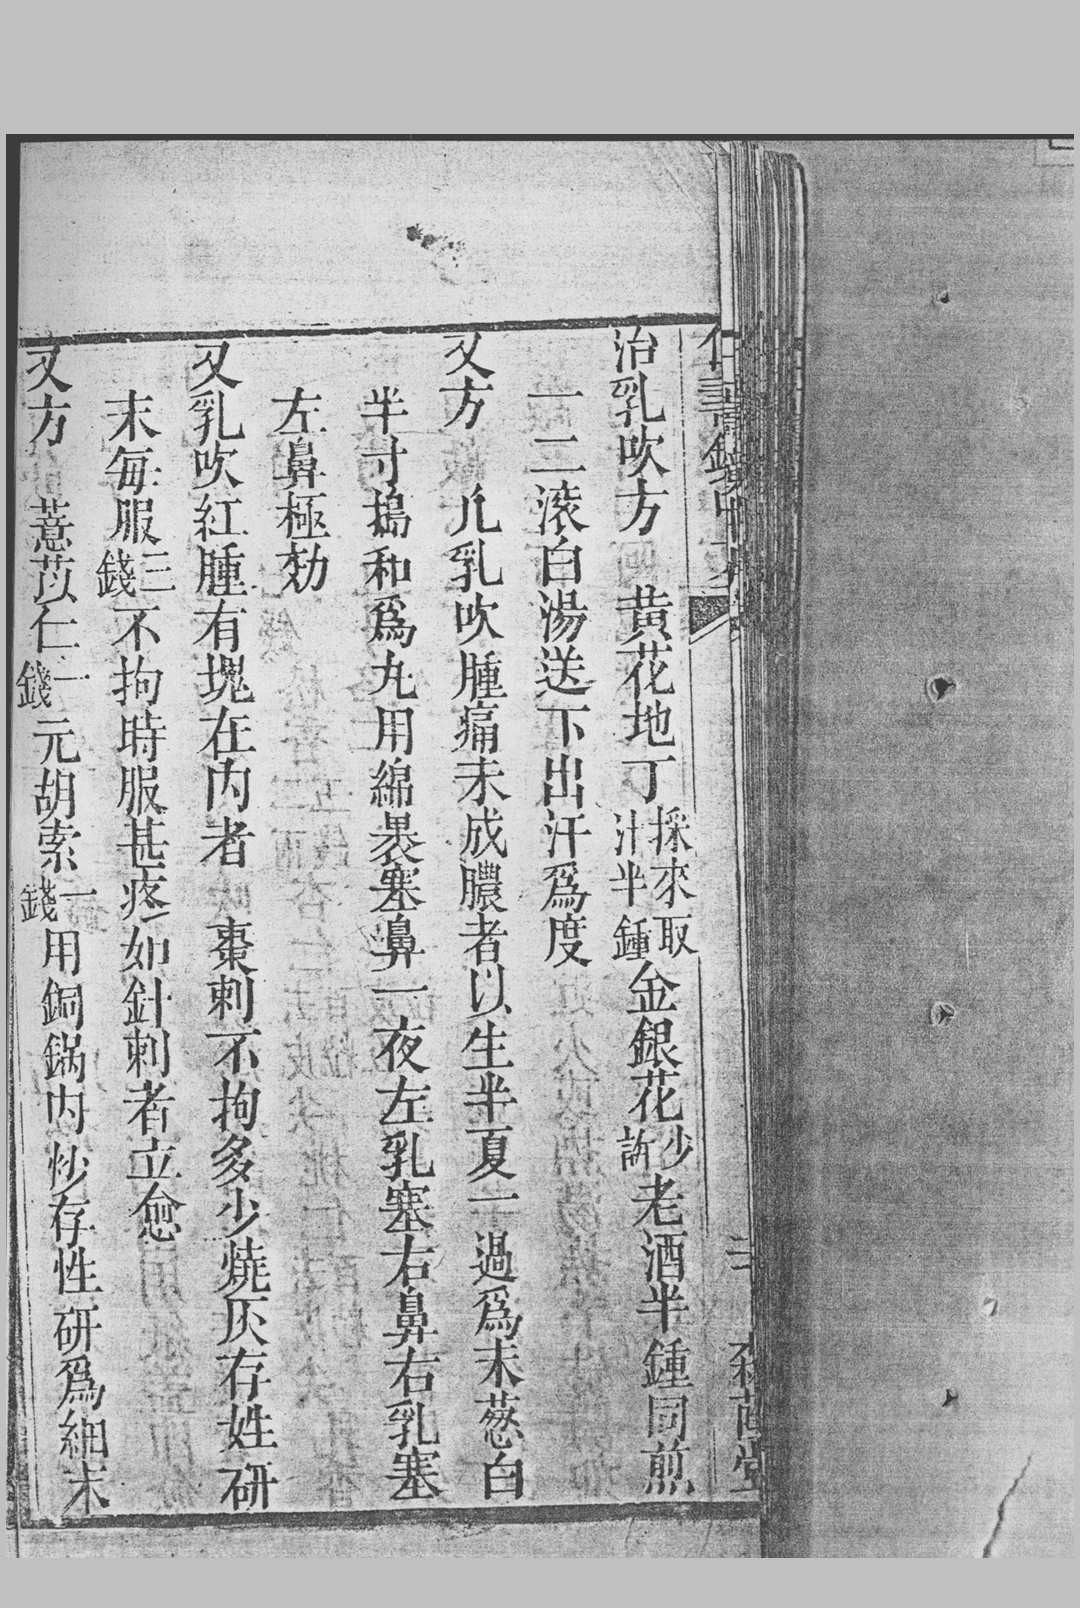 治乳吹方　黄花地丁採來取汁半鍾金銀花少許老酒半鍾同煎
一二滚白湯送下出汗爲度
又方　凢乳吹腫痛未成膿者以生半夏一過爲末葱白
半寸搗和爲丸用綿裹塞鼻一夜左乳塞右鼻右乳塞
左鼻極効
又乳吹紅腫有塊在内者　棗刺不拘多少燒灰存姓研
末每服三錢不拘時服甚疼如針刺者立愈
又方　薏苡仁一錢元胡索一錢用銅鍋内炒存性研爲細末